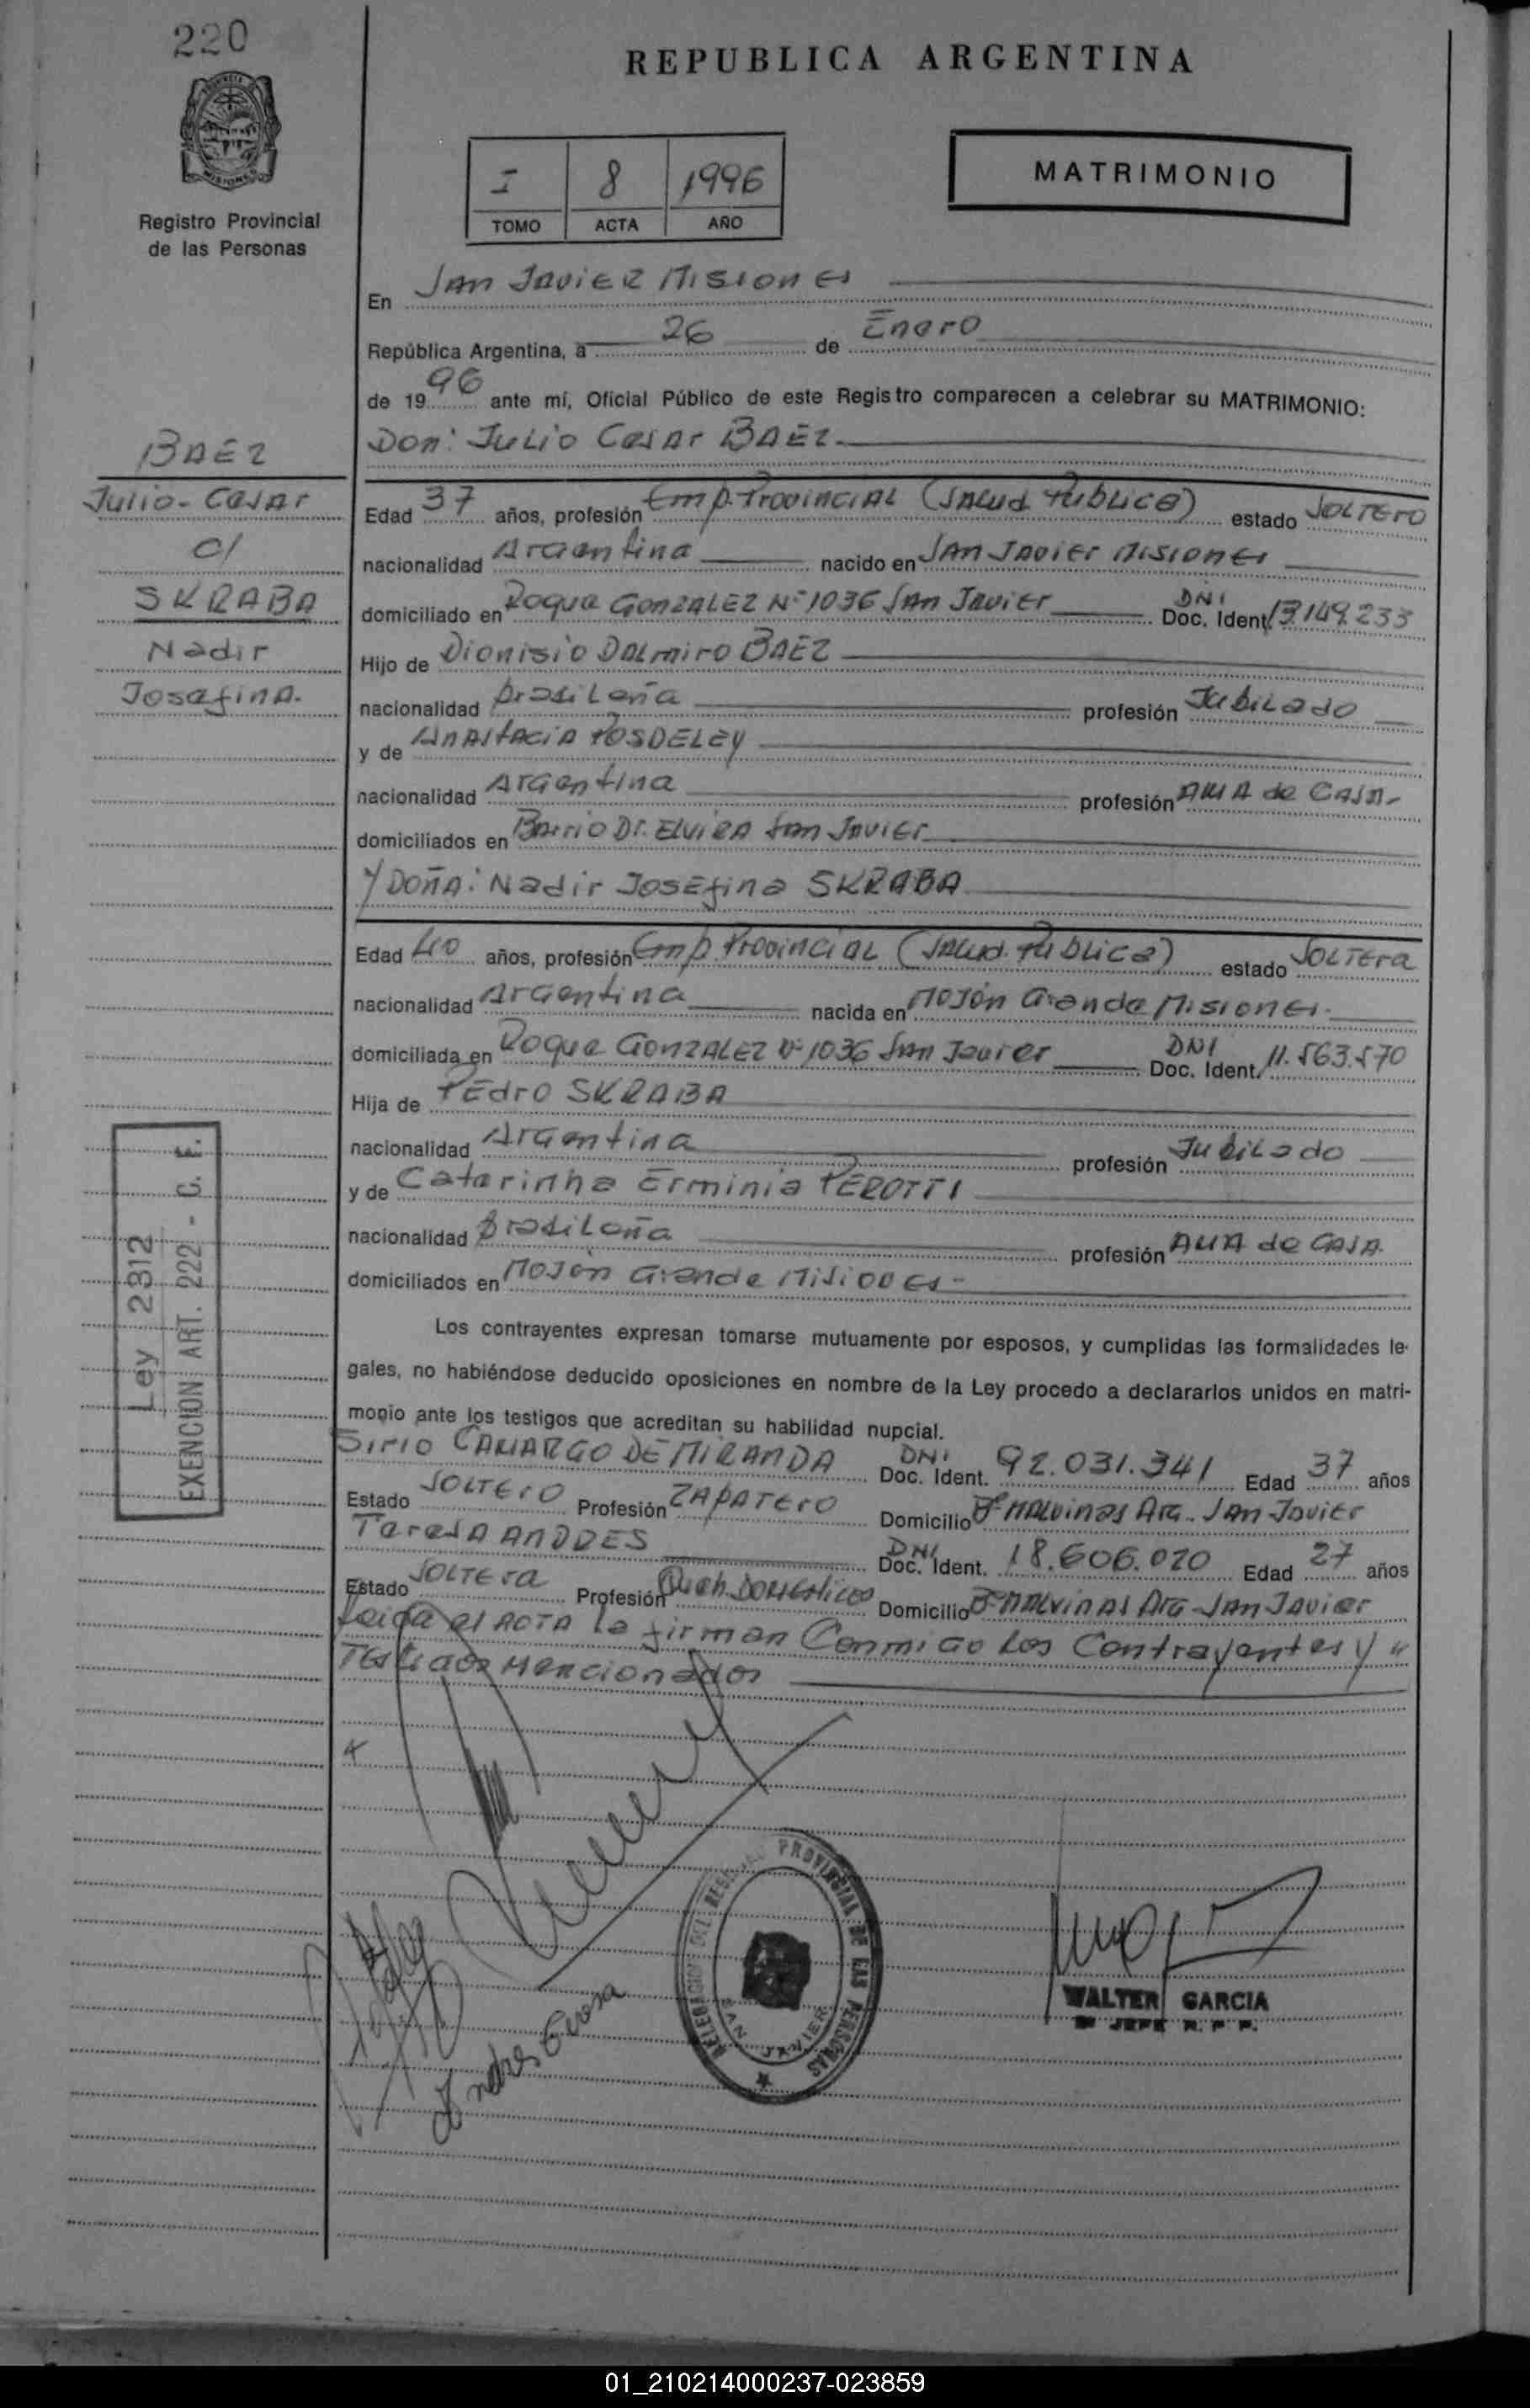 220
REPUBLICA ARGENTINA
MISIONES
Registro Provincial
de las Personas
I 8 1996
TOMO ACTA AÑO
MATRIMONIO
En San Javier Misiones
República Argentina, a 26 de Enero
de 1996 ante mí, Oficial Público de este Registro comparecen a celebrar su MATRIMONIO:
Don: Julio Cesar BAEZ
BAEZ
Julio-Cesar
c/
SKRABA
Nadir
Josefina.
Edad 37 años, profesión Emp. Provincial (Salud Publica) estado SOLTERO
nacionalidad Argentina nacido en San Javier Misiones
domiciliado en Roque Gonzalez Nº 1036 San Javier DNI Doc. Ident. 13.149.233
Hijo de Dionisio Dalmiro BAEZ
nacionalidad brasileña profesión Jubilado
y de Anastacia POSDELEY
nacionalidad Argentina profesión AMA de CASA-
domiciliados en Barrio Dr. Elvira San Javier
Y DOÑA: Nadir Josefina SKRABA
Edad 40 años, profesión Emp. Provincial (Salud Publica) estado SOLTERA
nacionalidad Argentina nacida en Mojón Grande Misiones.
domiciliada en Roque Gonzalez Nº 1036 San Javier DNI Doc. Ident. 11.563.570
Hija de Pedro SKRABA
nacionalidad Argentina profesión Jubilado
y de Catarinha Erminia PEROTTI
nacionalidad brasileña profesión AMA de CASA.
domiciliados en Mojón Grande Misiones-
Los contrayentes expresan tomarse mutuamente por esposos, y cumplidas las formalidades le-
gales, no habiéndose deducido oposiciones en nombre de la Ley procedo a declararlos unidos en matri-
monio ante los testigos que acreditan su habilidad nupcial.
Sirio CAMARGO DE MIRANDA DNI Doc. Ident. 92.031.341 Edad 37 años
Estado SOLTERO Profesión ZAPATERO Domicilio Bº MALVINAS Arg- San Javier
Teresa ANDRES DNI Doc. Ident. 18.606.020 Edad 27 años
Estado SOLTERA Profesión Domicilio Bº MALVINAS Arg- San Javier
Leida el ACTA la firman Conmigo los Contrayentes y
Testigos Mencionados
Ley 2312
EXENCION ART. 222 - C. F.
Andres Teresa
DELEGACION DEL REGISTRO PROVINCIAL DE LAS PERSONAS
SAN JAVIER
WALTER GARCIA
JEFE R. P. P.
01_210214000237-023859